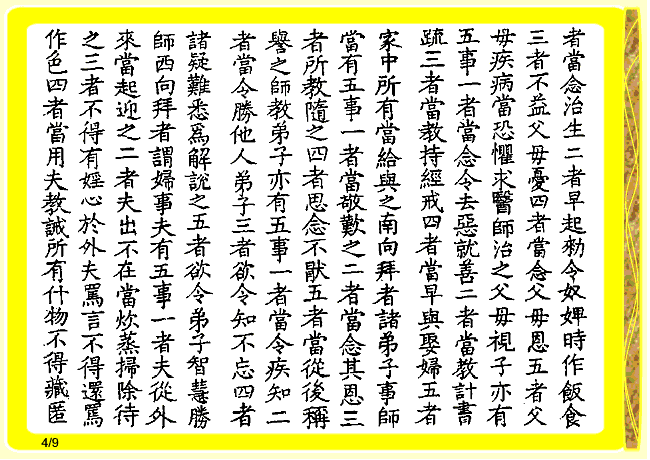 者當念治生二者早起勑令奴婢時作飯食
三者不益父母憂四者當念父母恩五者父
母疾病當恐懼求醫師治之父母視子亦有
五事一者當念令去惡就善二者當教計書
疏三者當教持經戒四者當早與娶婦五者
家中所有當給與之南向拜者諸弟子事師
當有五事一者當敬歎之二者當念其恩三
者所教隨之四者思念不猒五者當從後稱
譽之師教弟子亦有五事一者當令疾知二
者當令勝他人弟子三者欲令知不忘四者
諸疑難悉為解說之五者欲令弟子智慧勝
師西向拜者謂婦事夫有五事一者夫從外
來當起迎之二者夫出不在當炊蒸掃除待
之三者不得有婬心於外夫罵言不得還罵
作色四者當用夫教誡所有什物不得藏匿
4/9